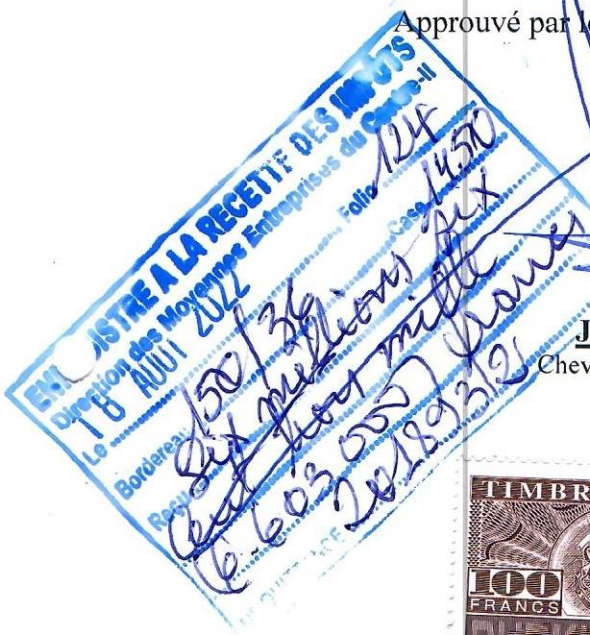 Approuvé par l
ENREGISTRE A LA RECETTE DES IMPOTS
Direction des Moyennes Entreprises du Centre-II
Le 18 AOUT 2022 Folio 124
Bordereau 150/36 Case 1450
Reçu Six millions six
Cent trois mille
(6.603.000) francs
QUITTANCE
J
Chev
TIMBR
100
FRANCS